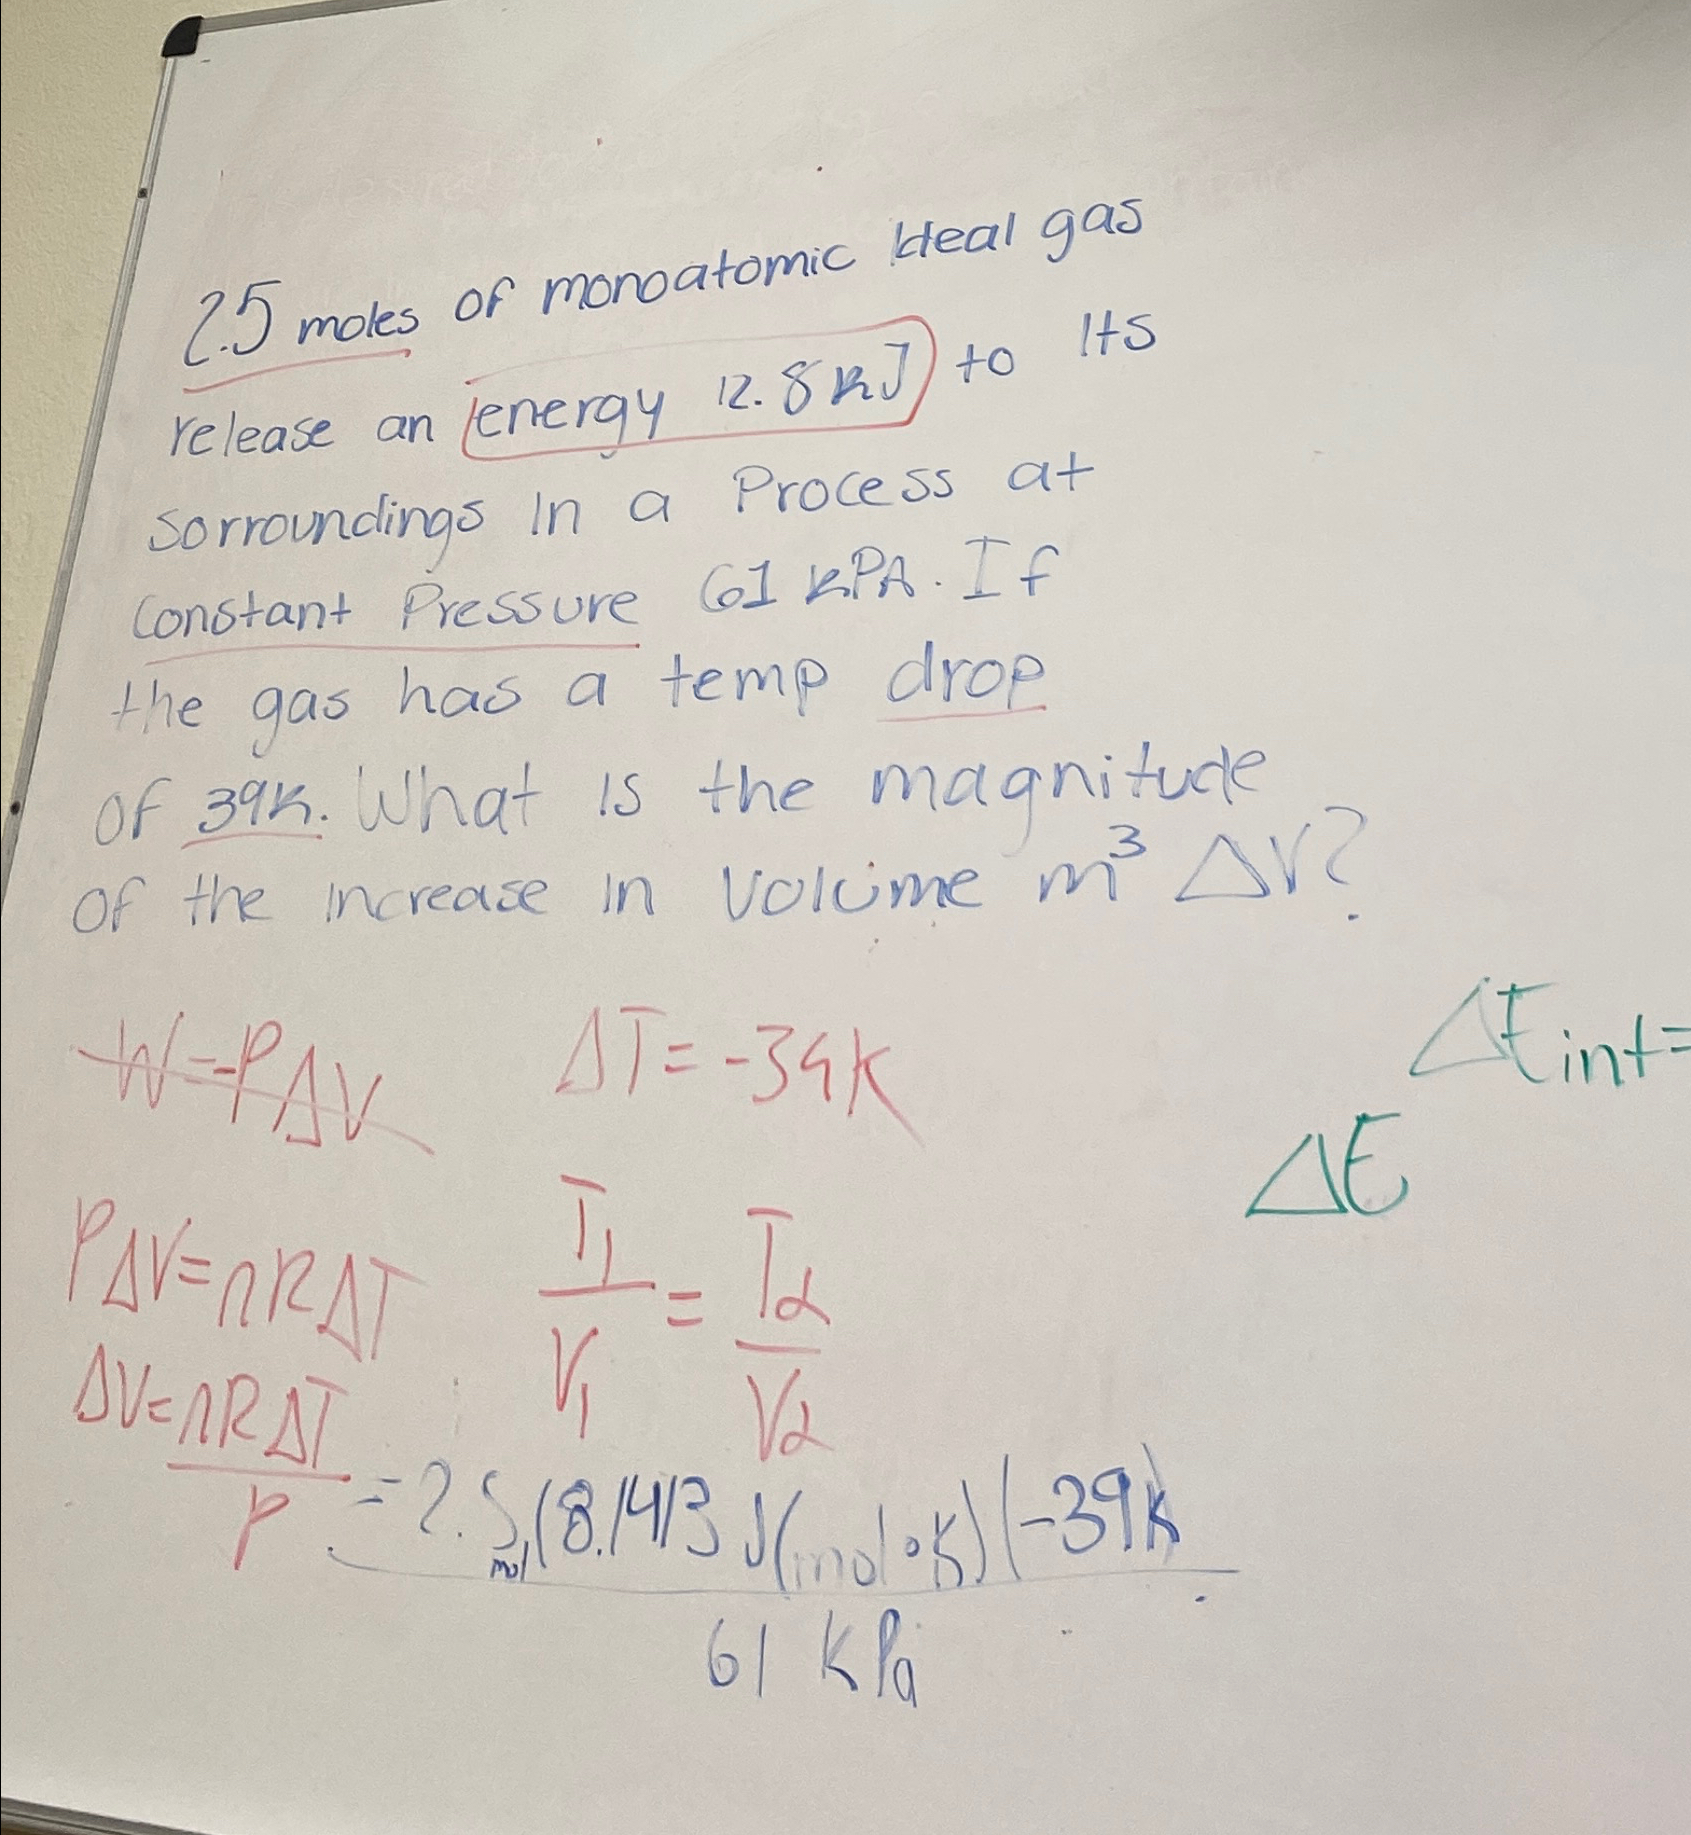 2.5 moles of monoatomic Ideal gas
release an energy 12.8 kJ to Its
sorroundings In a Process at
Constant Pressure 61 kPA. If
the gas has a temp drop
of 39K. What is the magnitude
of the increase in volume m³ ΔV?
W=-PΔV
ΔT=-39K
ΔEint=
ΔE
PΔV=nRΔT
T1/V1 = T2/V2
ΔV=nRΔT/P = 2.5 mol (8.1413 J(mol•K)(-39K / 61 KPa